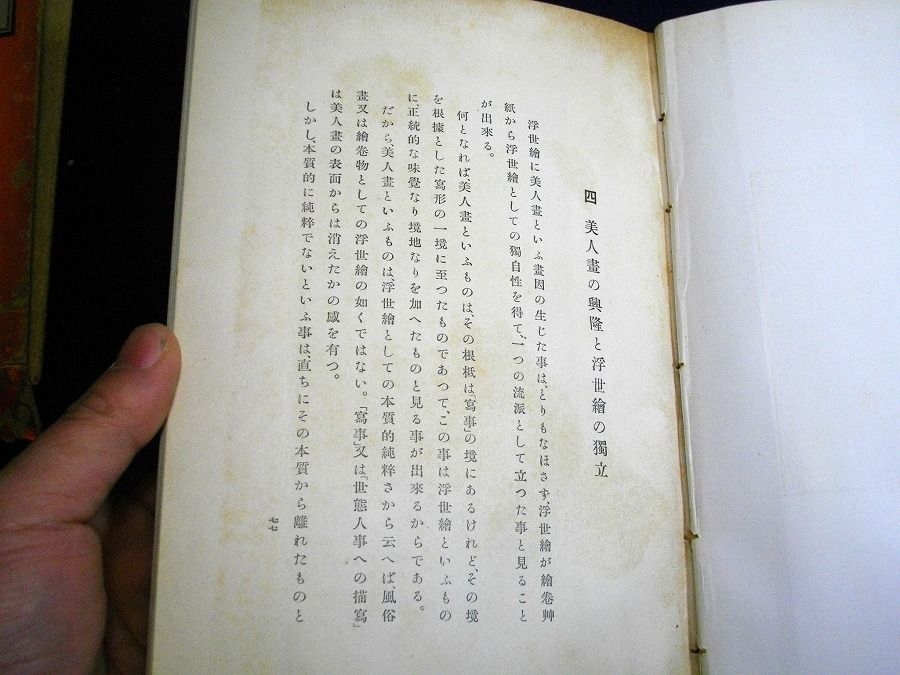 四 美人畫の興隆と浮世繪の獨立
浮世繪に美人畫といふ畫因の生じた事は、とりもなほさず、浮世繪が繪卷艸
紙から浮世繪としての獨自性を得て、一つの流派として立つた事と見ること
が出來る。
何となれば、美人畫といふものは、その根柢は「寫事」の境にあるけれど、その境
を根據とした寫形の一境に至つたものであつて、この事は浮世繪といふもの
に、正統的な味覺なり境地なりを加へたものと見る事が出來るからである。
だから、美人畫といふものは、浮世繪としての本質的純粹さから云へば、風俗
畫又は繪卷物としての浮世繪の如くではない。「寫事」又は「世態人事への描寫」
は美人畫の表面からは消えたかの感を有つ。
しかし、本質的に純粹でないといふ事は、直ちにその本質から離れたものと
七七